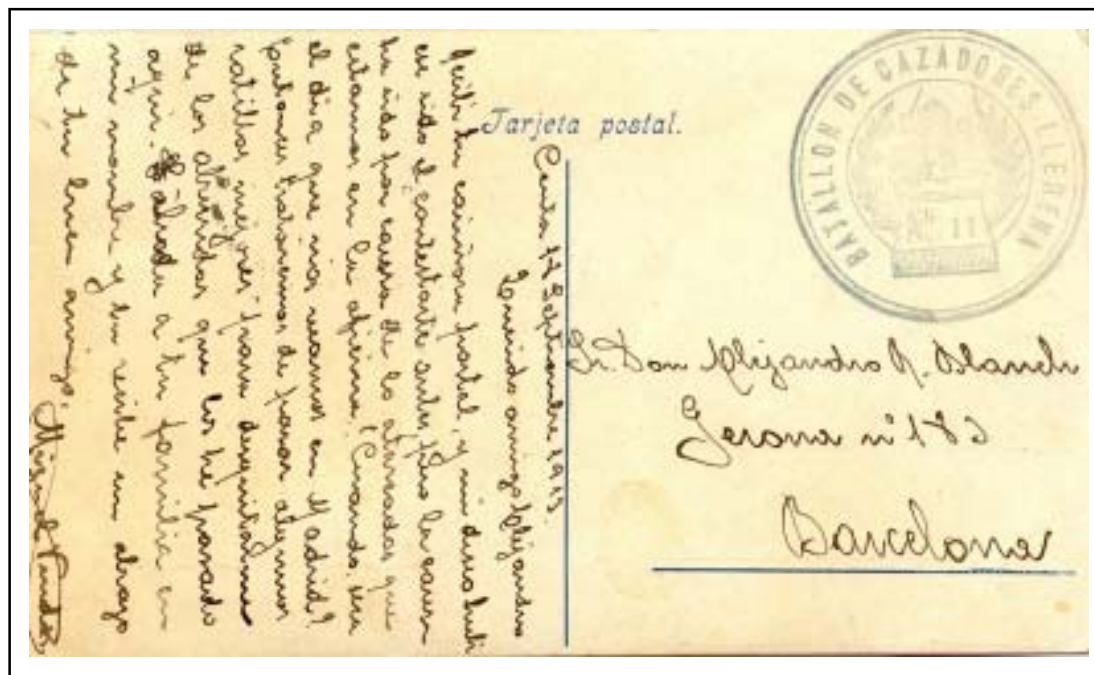 Tarjeta postal.
BATALLON DE CAZADORES LLERENA
11
Sr. Don Alejandro R. Blanch
Gerona nº 183
Barcelona
Ceuta Septiembre 1913.
Querido amigo Alejandro
Recibí tu cariñosa postal, y mi deseo
sido el contestarte antes, pero la causa
ha sido por causa de lo atareados que
estamos en la oficina. Cuando sea
el dia que nos veamos en Madrid?
trataremos de pasar algunos
ratillos mejores para desquitarme
de los aburridos que los he pasado
aqui. Saluda a tu familia en
mi nombre y tu recibe un abrazo
de tu buen amigo.
Miguel